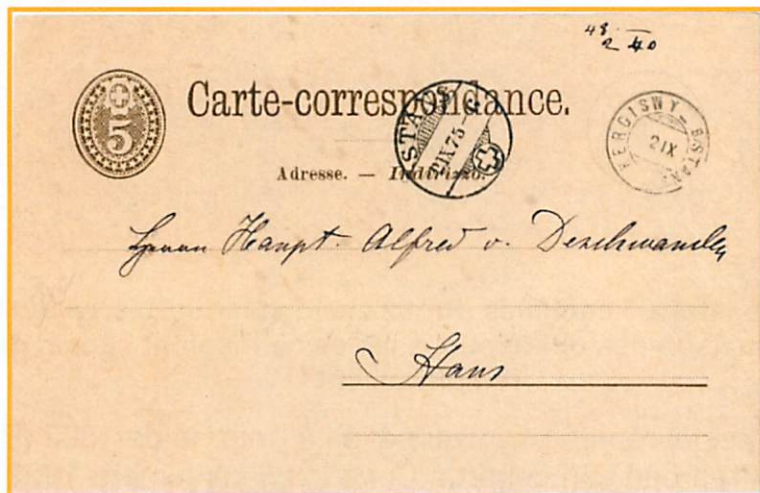 48.—
2 40
5
Carte-correspondance.
STANS
2 IX 75
HERGISWYL B/STANS
2 IX
Adresse. — Indirizzo.
Herrn Haupt. Alfred v. Deschwanden
Stans